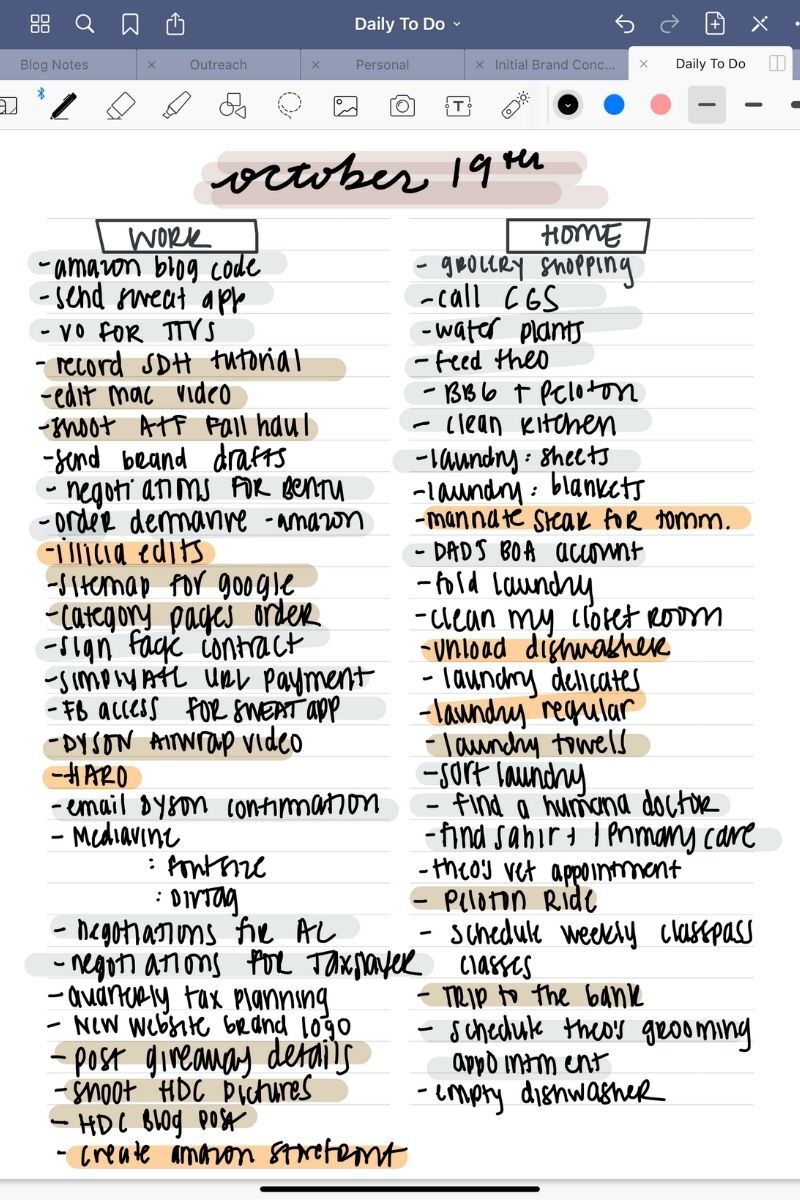 Daily To Do
Blog Notes
Outreach
Personal
Initial Brand Conc...
Daily To Do
october 19th
WORK
- amazon blog code
- send sweat app
- VO FOR TTVS
- record SDH tutorial
- edit mac video
- shoot ATF Fall haul
- send brand drafts
- negotiations FOR
- order dermavive - amazon
- illicia edits
- sitemap for google
- category pages order
- sign contract
- SIMPLYATL URL payment
- FB access FOR SWEAT app
- DYSON AIRWRAP VIDEO
- HARO
- email Dyson confirmation
- Mediavine
: Font size
: DIVTag
- negotiations for AL
- negotiations FOR Taxslayer
- quarterly tax planning
- New website brand logo
- post giveaway details
- shoot HDC pictures
- HDC Blog Post
- create amazon storefront
HOME
- GROCERY Shopping
- call CGS
- water plants
- feed theo
- BBG + Peloton
- clean kitchen
- laundry: sheets
- laundry: blankets
- marinate steak for tomm.
- DADS BOA account
- fold laundry
- clean my closet room
- unload dishwasher
- laundry delicates
- laundry regular
- laundry towels
- sort laundry
- find a humana doctor
- find sahir + I Primary care
- theo's vet appointment
- Peloton Ride
- schedule weekly classpass
classes
- TRIP to the bank
- schedule theo's grooming
appointment
- empty dishwasher